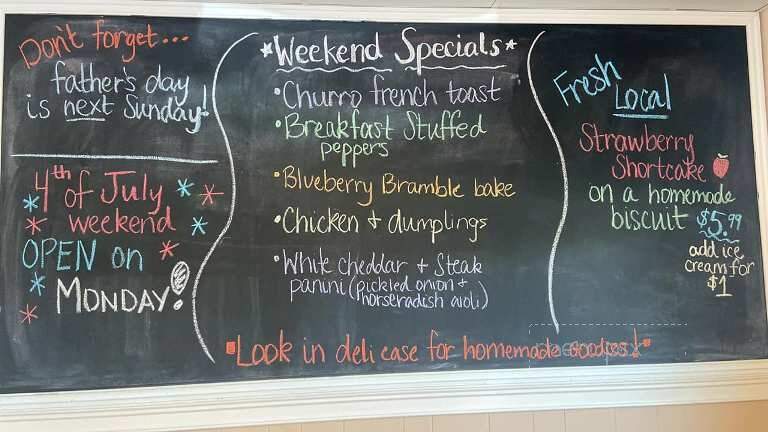 Don't forget...
father's day
is next Sunday!
4th of July
weekend
OPEN on
MONDAY!
*Weekend Specials*
•Churro french toast
•Breakfast Stuffed
peppers
•Blueberry Bramble bake
•Chicken + dumplings
•White cheddar + Steak
panini (pickled onion +
horseradish aioli)
Fresh
Local
Strawberry
Shortcake
on a homemade
biscuit $5.99
add ice
cream for
$1
Look in deli case for homemade goodies!